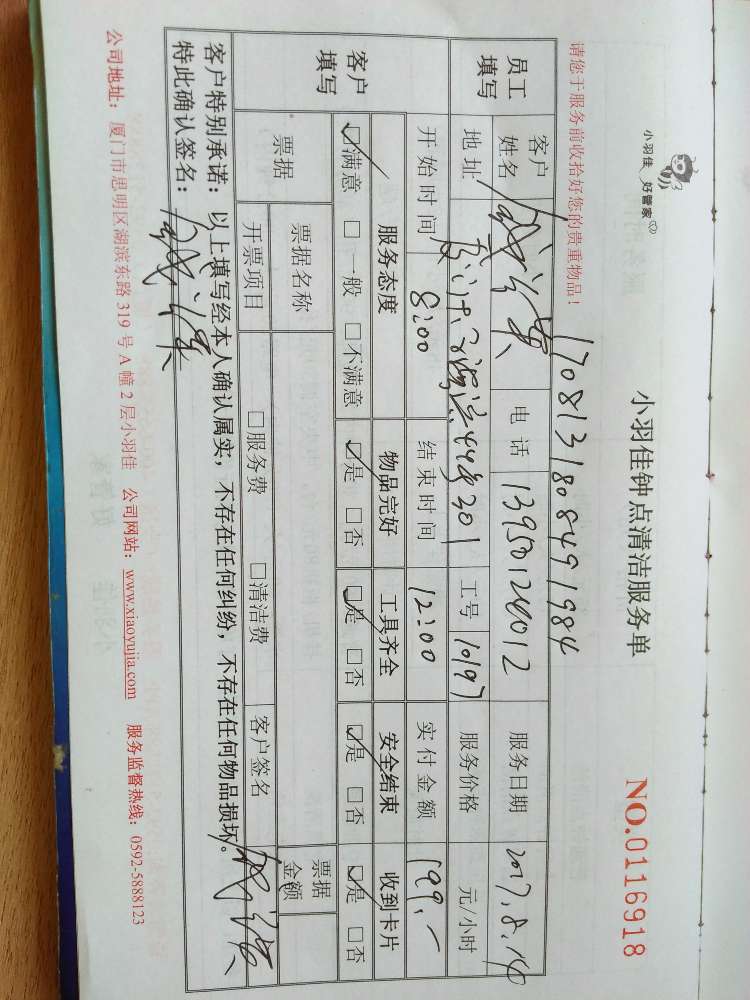 小羽佳 好管家
小羽佳钟点清洁服务单
NO.0116918
请您于服务前收拾好您的贵重物品！
170813180849 1984
员工填写
客户姓名 电话 13950124012 服务日期 2017.8.14
地址 44号301 工号 10197 服务价格 元/小时
开始时间 8:00 结束时间 12:00 实付金额 199.-
客户填写
服务态度 物品完好 工具齐全 安全结束 收到卡片
☑满意 □一般 □不满意 ☑是 □否 ☑是 □否 ☑是 □否 ☑是 □否
票据 票据名称 票据金额
开票项目 □服务费 □清洁费 客户签名
客户特别承诺：以上填写经本人确认属实，不存在任何纠纷，不存在任何物品损坏。
特此确认签名：
公司地址：厦门市思明区湖滨东路 319 号 A 幢 2 层小羽佳 公司网站：www.xiaoyujia.com 服务监督热线：0592-5888123